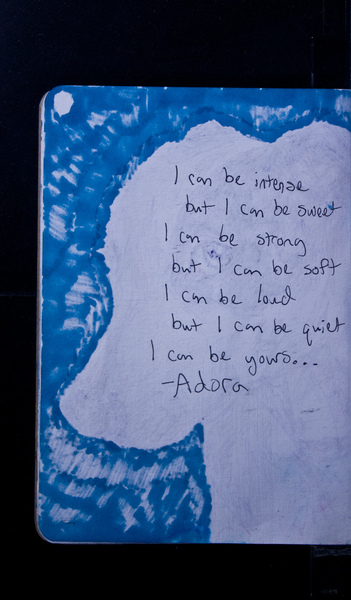 I can be intense
but I can be sweet
I can be strong
but I can be soft
I can be loud
but I can be quiet
I can be yours...
-Adora